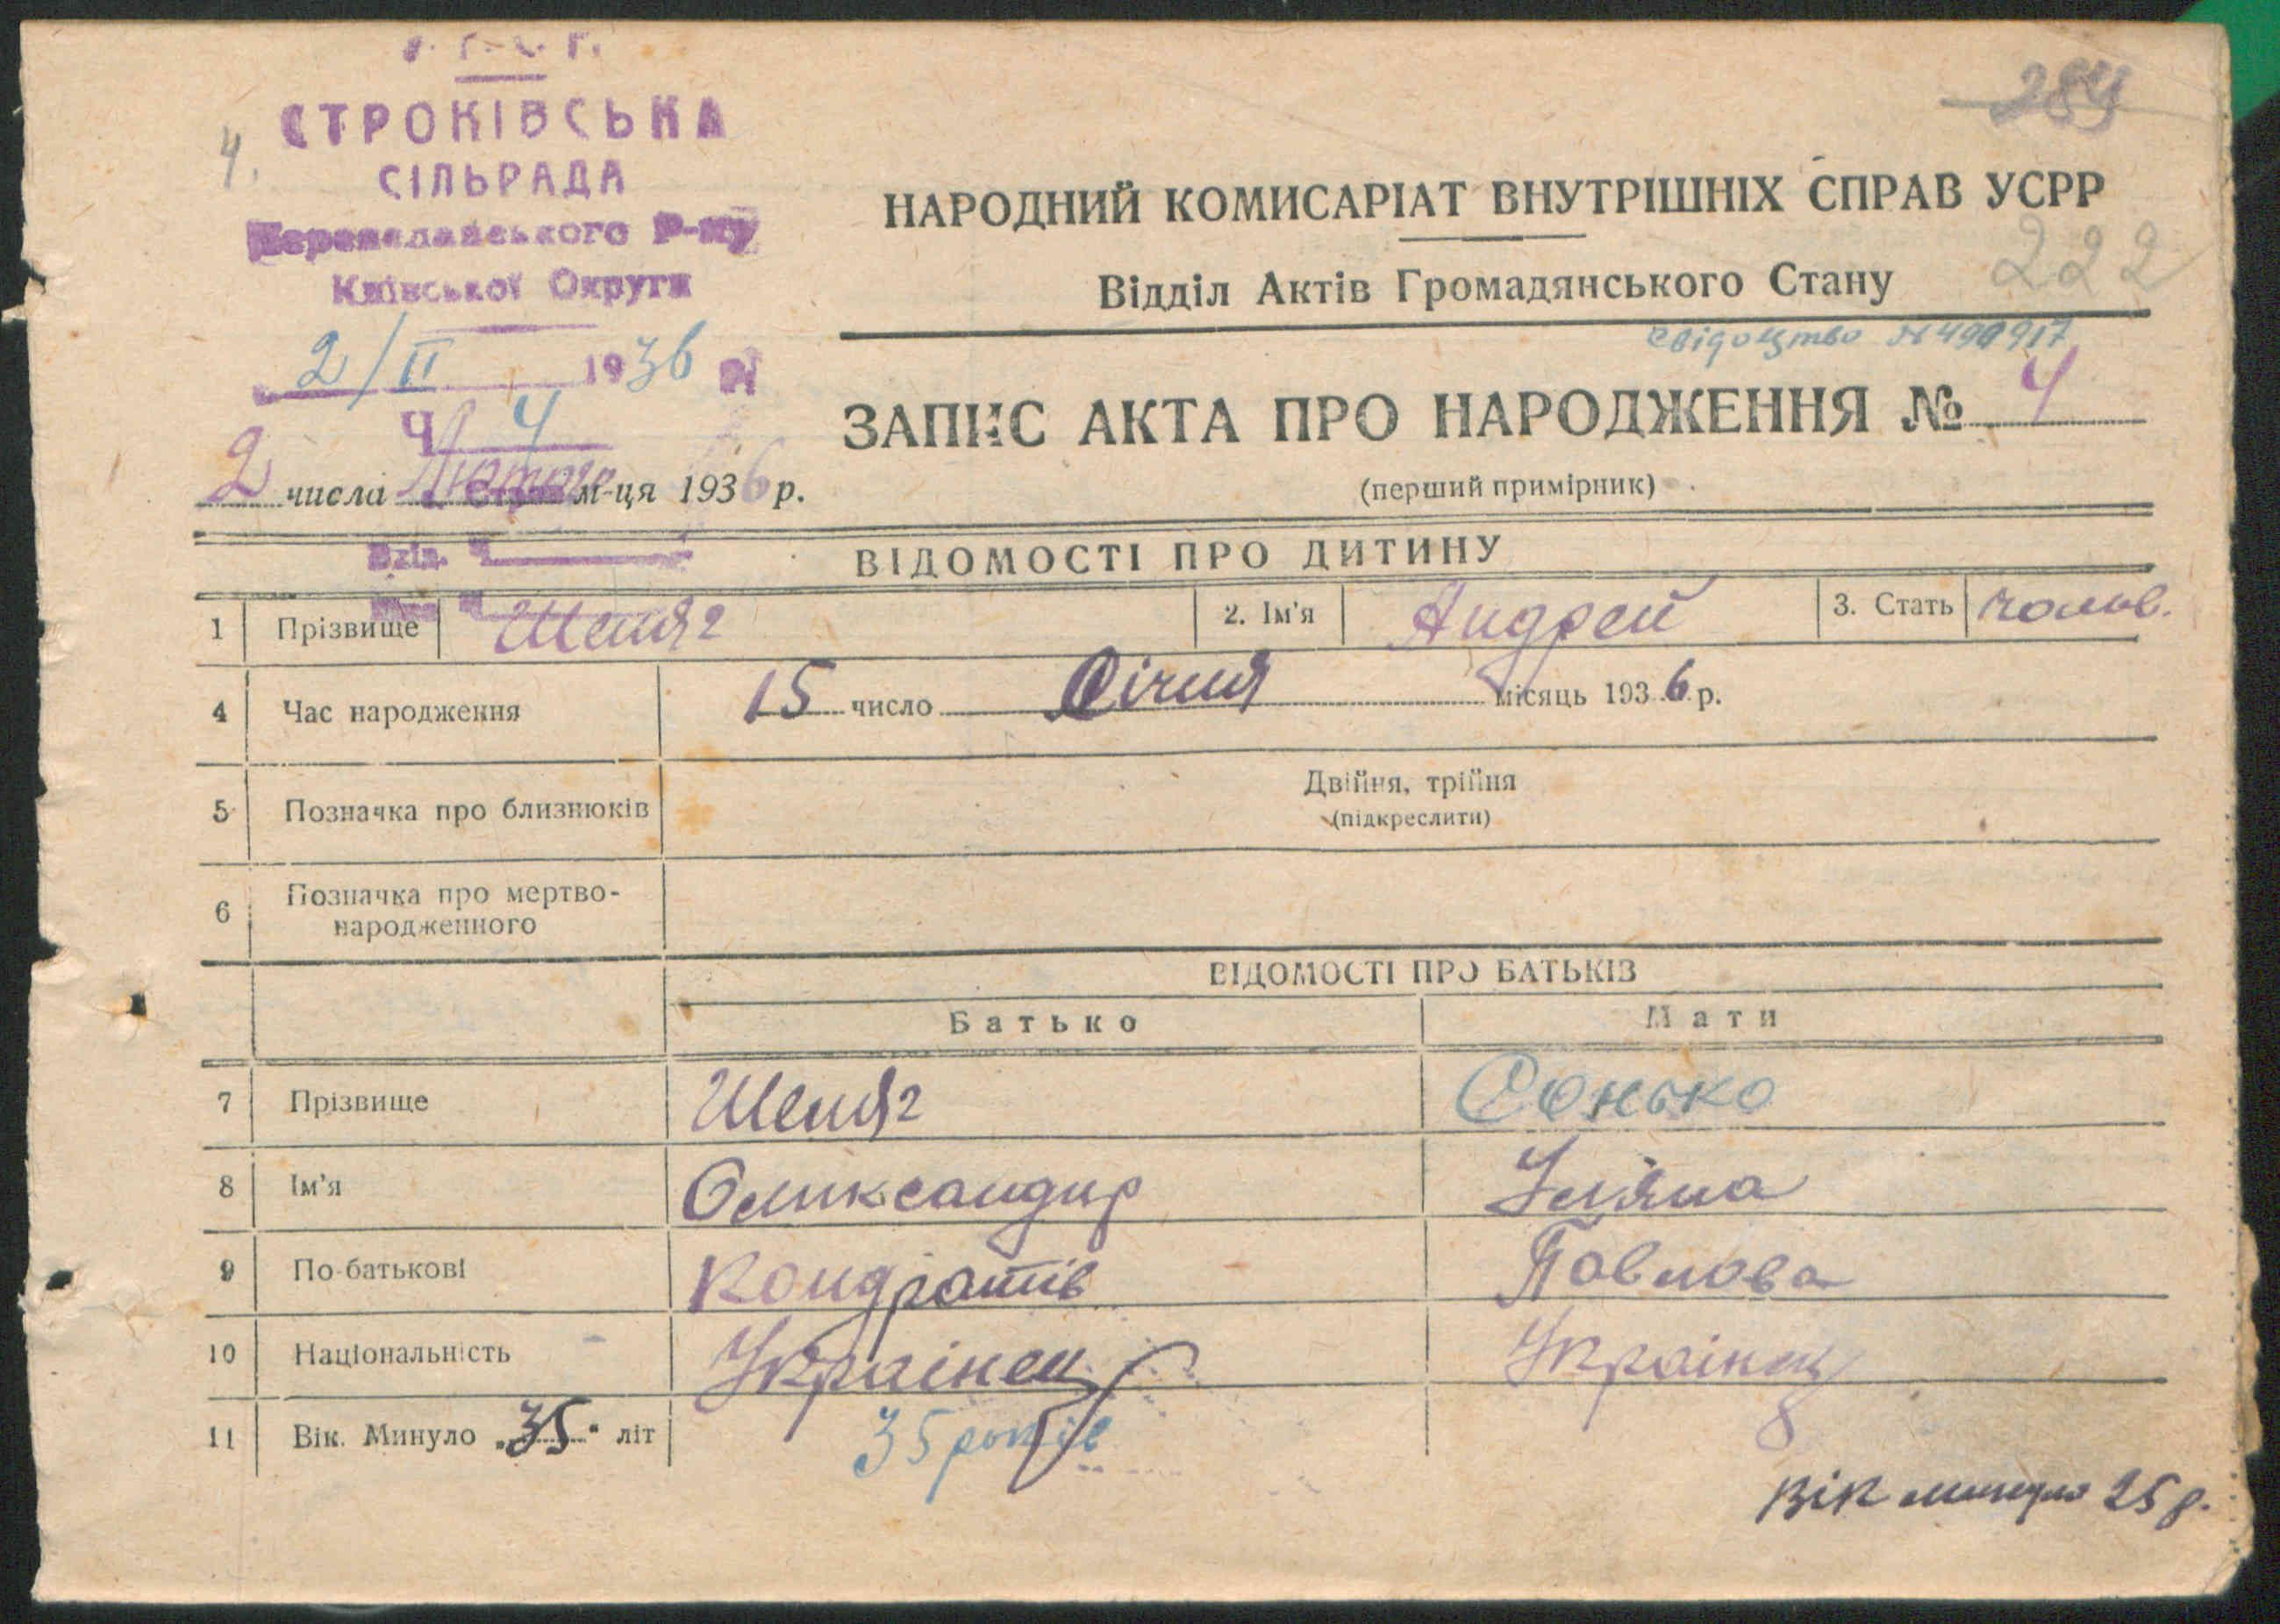 284
4.
СТРОКІВСЬКА
СІЛЬРАДА
Переяславського Р-ну
Київської Округи
2/II 1936
Ч 4
НАРОДНИЙ КОМИСАРІАТ ВНУТРІШНІХ СПРАВ УСРР
222
Відділ Актів Громадянського Стану
Свідоцтво № 490917
ЗАПИС АКТА ПРО НАРОДЖЕННЯ № 4
(перший примірник)
2 числа Лютого м-ця 1936 р.
ВІДОМОСТІ ПРО ДИТИНУ
1 Прізвище Шеляг 2. Ім'я Андрей 3. Стать чолов.
4 Час народження 15 число Січня місяць 1936 р.
5 Позначка про близнюків Двійня, трійня
(підкреслити)
6 Позначка про мертво-
народженного
ВІДОМОСТІ ПРО БАТЬКІВ
Батько Мати
7 Прізвище Шеляг Сонько
8 Ім'я Оликсандир Уляна
9 По-батькові Кондратів Павлова
10 Національність Українец Українц
11 Вік. Минуло "35" літ 35 років
Вік минуло 25 р.